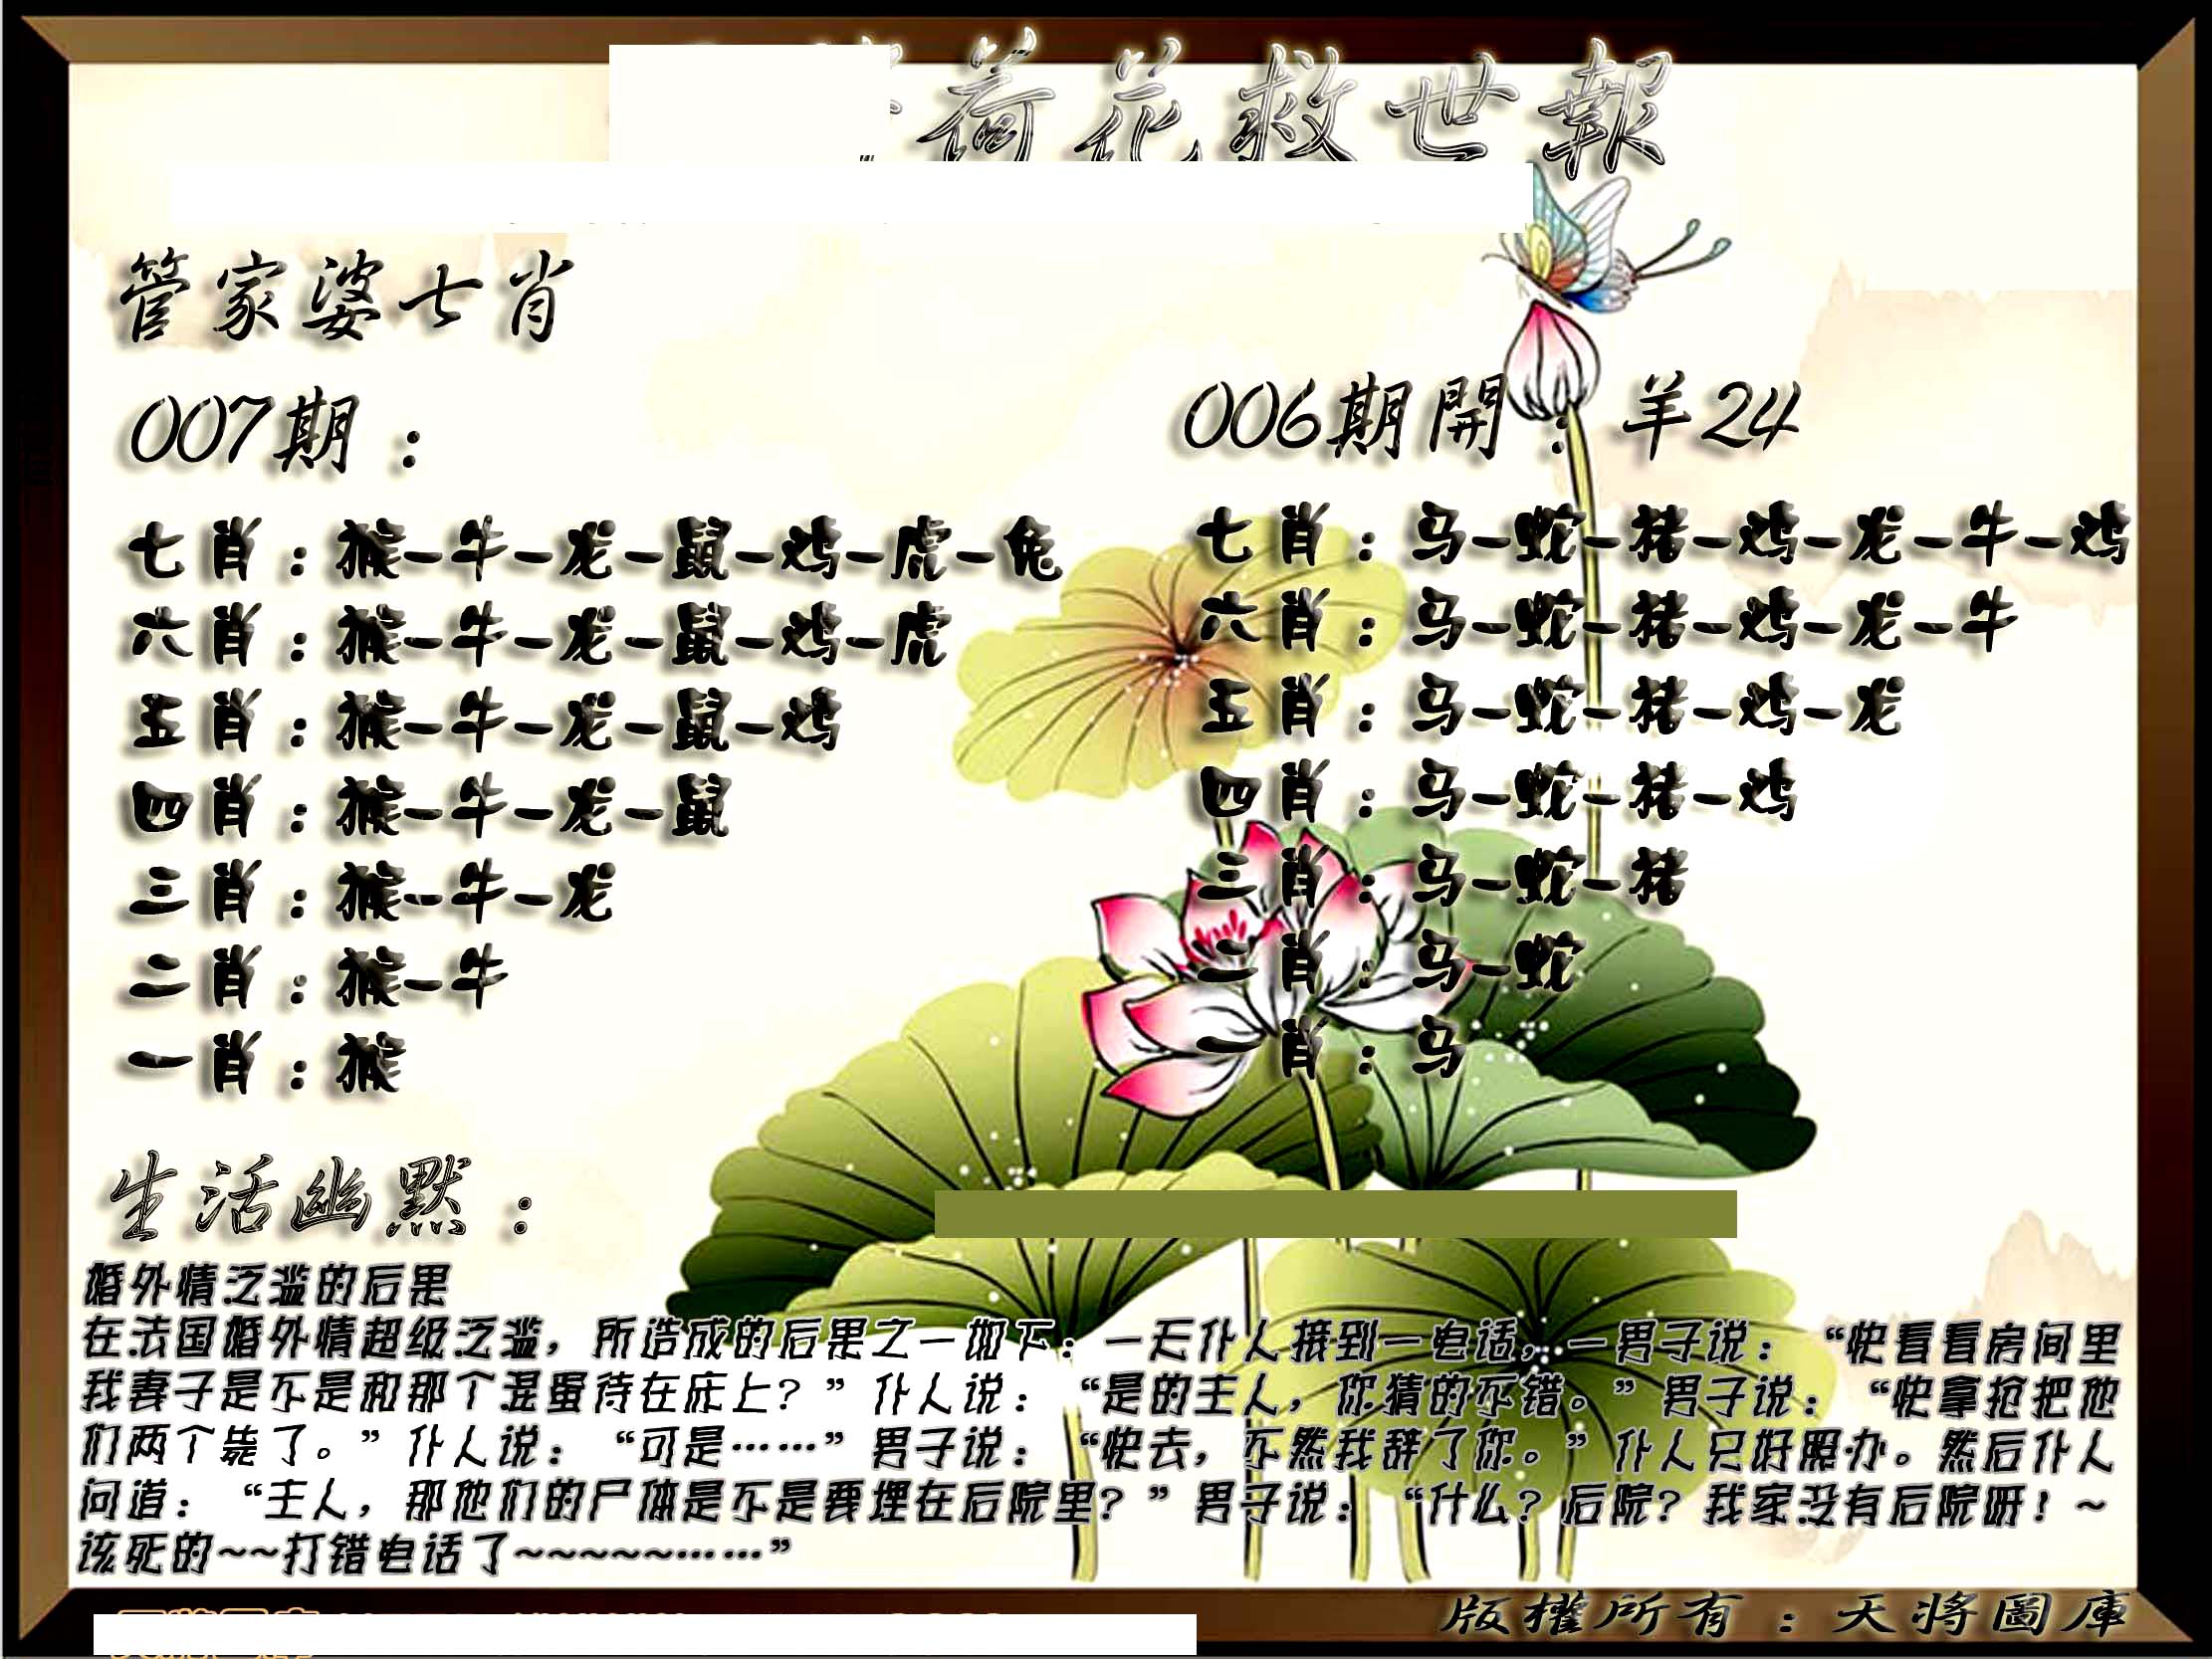 荷花救世報
管家婆七肖
007期：
七肖：猴-牛-龙-鼠-鸡-虎-兔
六肖：猴-牛-龙-鼠-鸡-虎
五肖：猴-牛-龙-鼠-鸡
四肖：猴-牛-龙-鼠
三肖：猴-牛-龙
二肖：猴-牛
一肖：猴
006期開：羊24
七肖：马-蛇-猪-鸡-龙-牛-鸡
六肖：马-蛇-猪-鸡-龙-牛
五肖：马-蛇-猪-鸡-龙
四肖：马-蛇-猪-鸡
三肖：马-蛇-猪
二肖：马-蛇
一肖：马
生活幽默：
婚外情泛滥的后果
在法国婚外情超级泛滥，所造成的后果之一如下：一天仆人接到一电话，一男子说：“快看看房间里
我妻子是不是和那个混蛋待在床上？”仆人说：“是的主人，你猜的不错。”男子说：“快拿抢把他
们两个毙了。”仆人说：“可是……”男子说：“快去，不然我辞了你。”仆人只好照办。然后仆人
问道：“主人，那他们的尸体是不是要埋在后院里？”男子说：“什么？后院？我家没有后院呀！~
该死的~~打错电话了~~~~~~……”
版權所有：天将圖庫